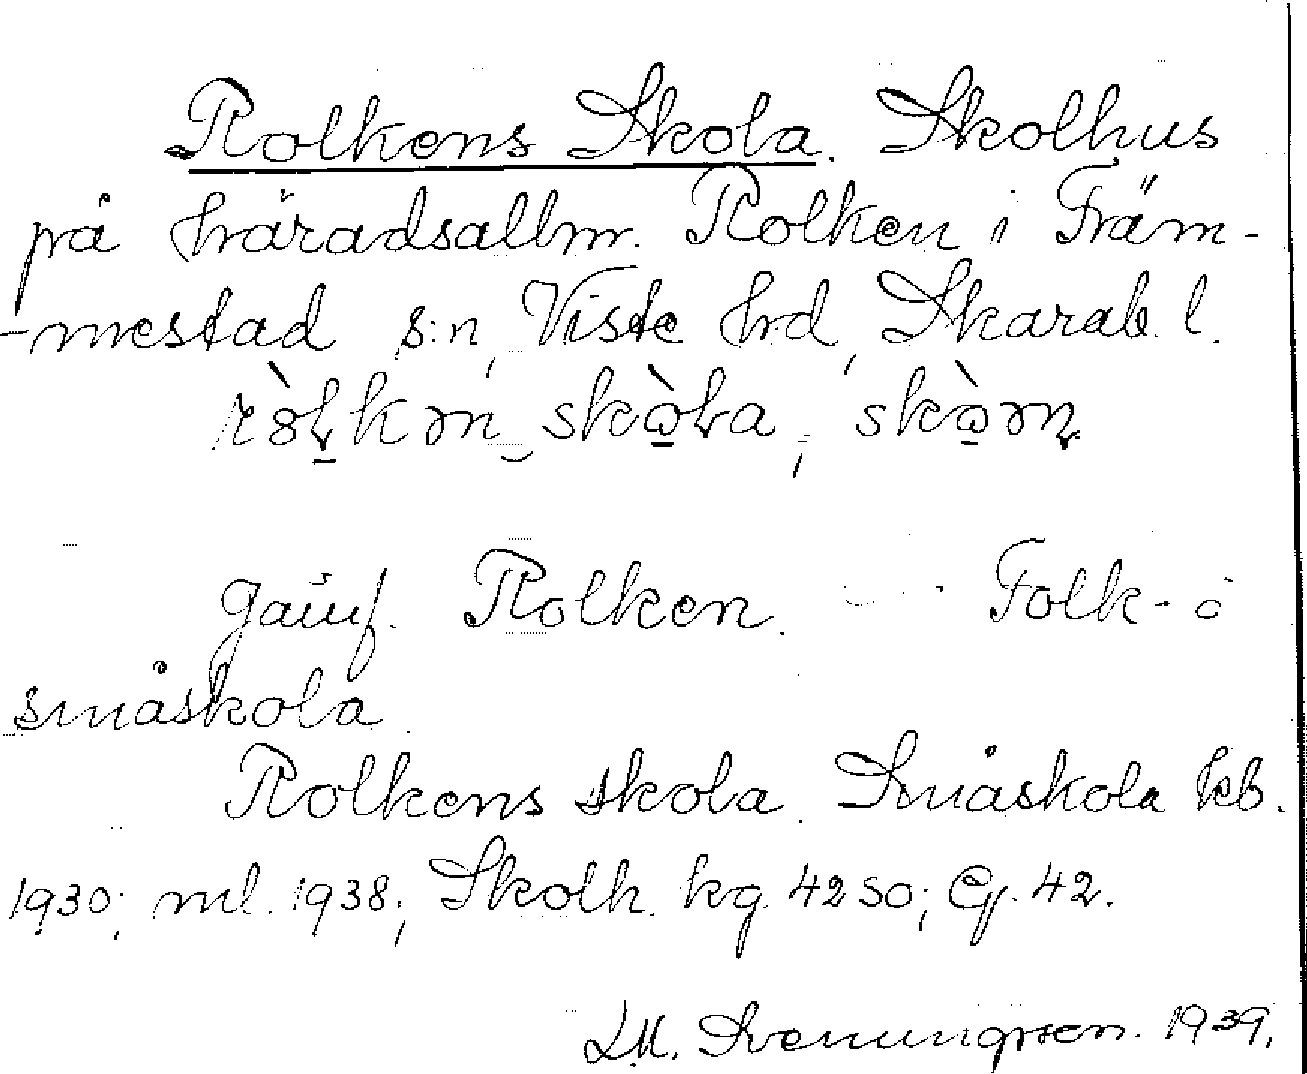 Rolkens Skola. Skolhus
på häradsallm. Rolken i Främ-
-mestad s:n, Viste hrd, Skarab. l.
skò̱ła,
Jämf. Rolken. Folk- o
småskola.
Rolkens skola. Småskola kb.
1930; ml. 1938; Skolh. kg. 42 SO; Ej. 42.
Svenungsson. 1939.